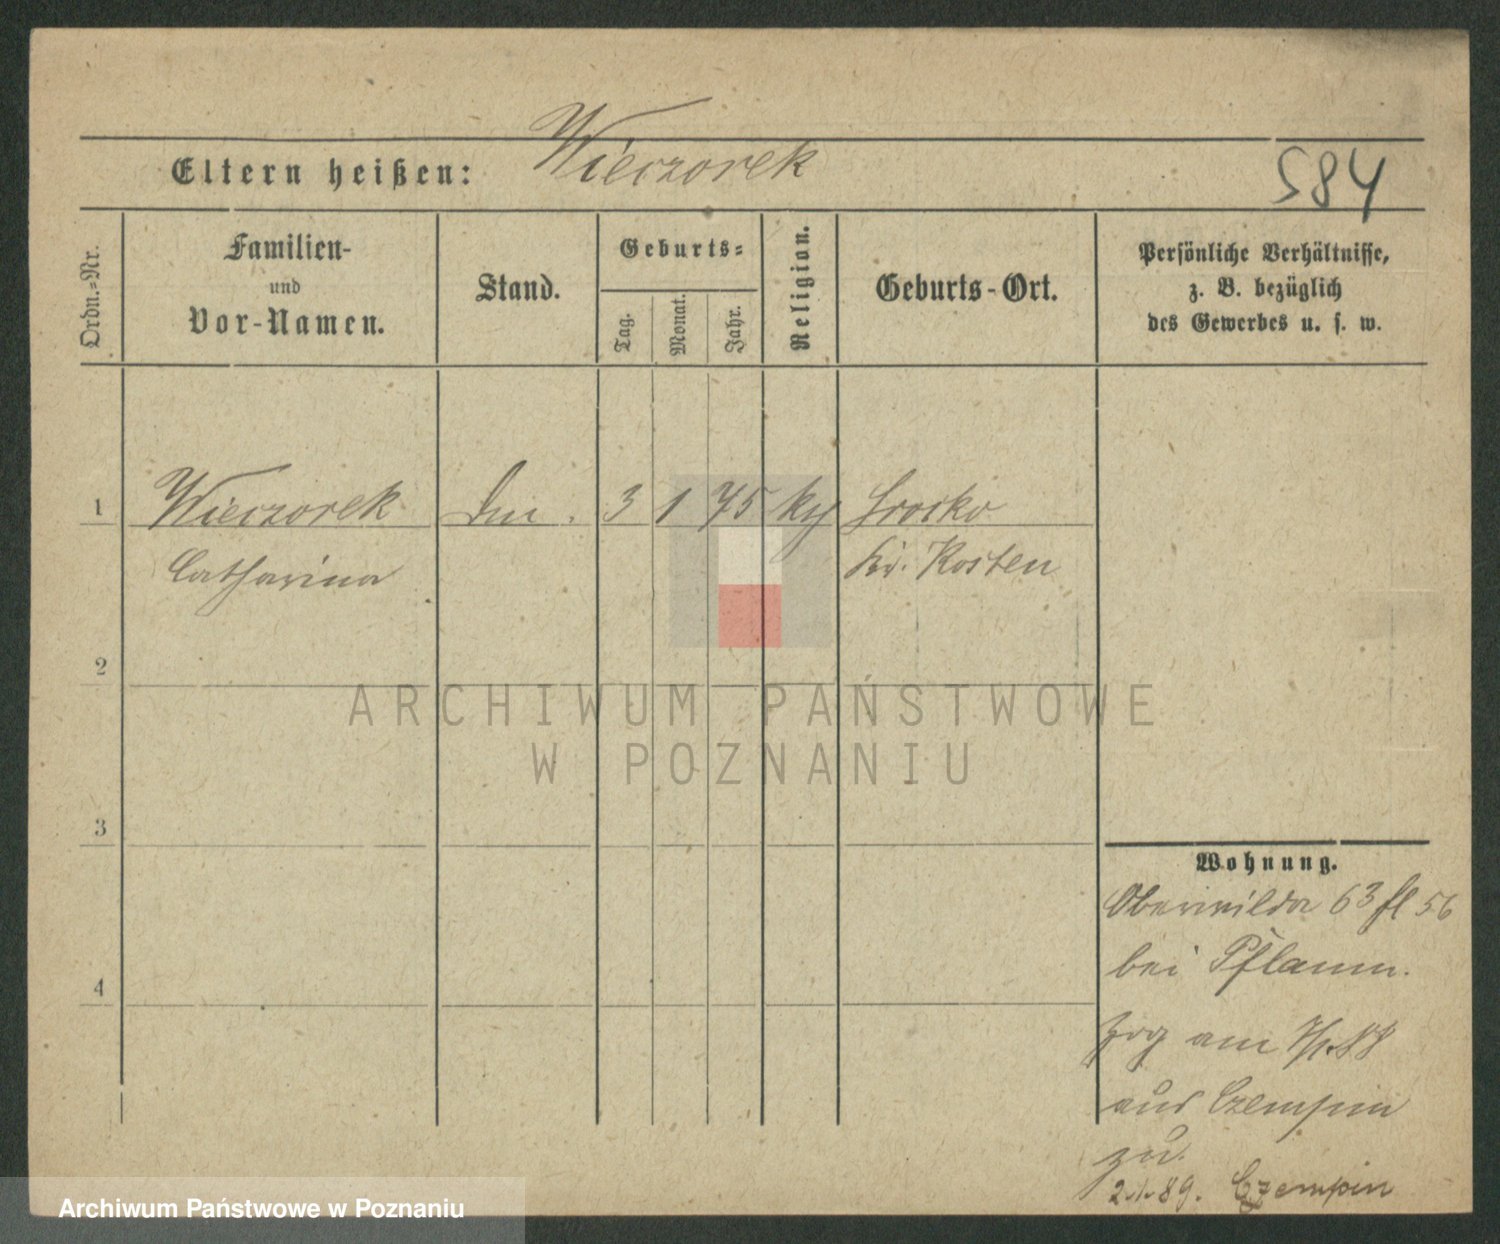 Wieczorek
Eltern heißen:
584
Ordn.-Nr.
Familien-
und
Vor-Namen.
Stand.
Geburts-
Tag.
Monat.
Jahr.
Religion.
Geburts-Ort.
Persönliche Verhältnisse,
z. B. bezüglich
des Gewerbes u. s. w.
1 Wieczorek 3 1 75 Srocko
Catharina Kr. Kosten
2
3
4
ARCHIWUM PAŃSTWOWE
W POZNANIU
Wohnung.
Oberwilda 63 fl 56
bei Pflaum.
Zog am
aus Czempin
zu.
2.1.89. Czempin
Archiwum Państwowe w Poznaniu